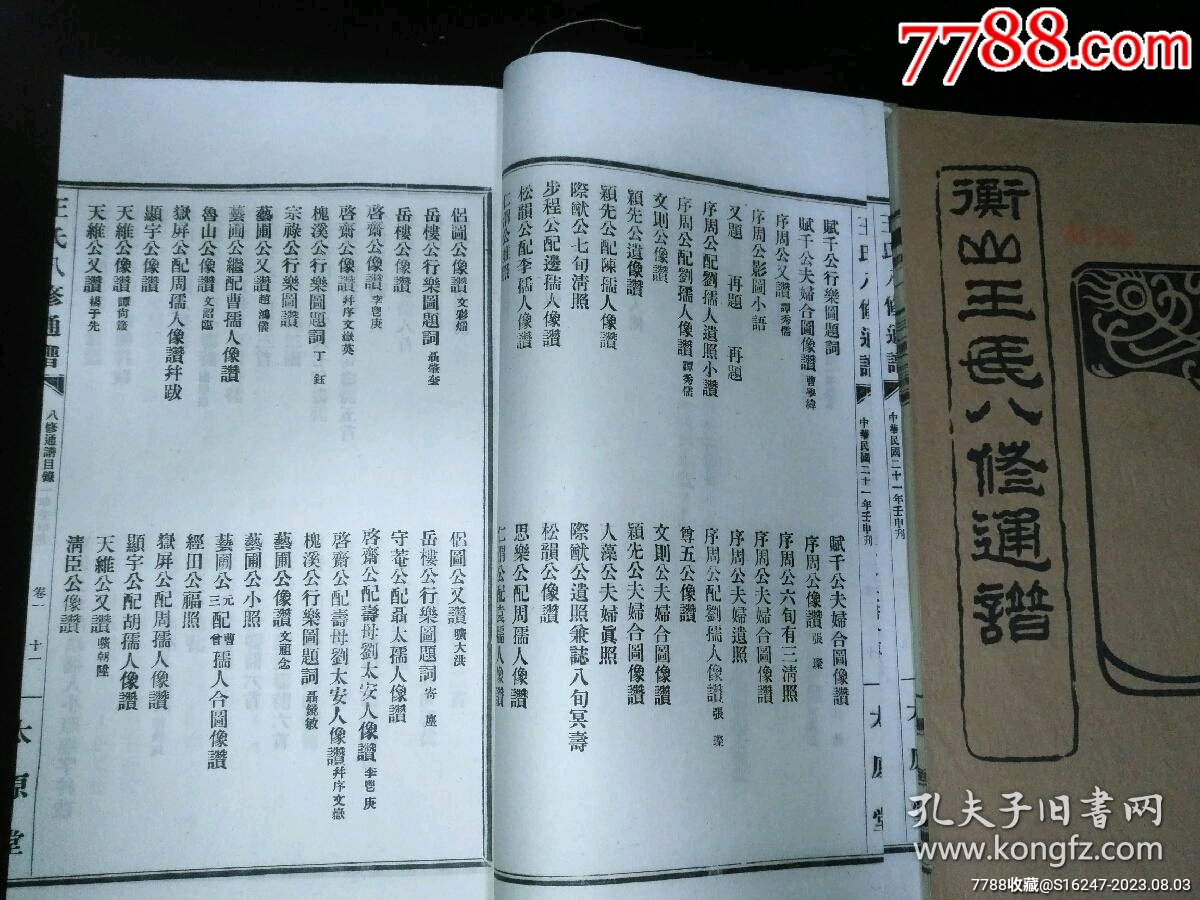 7788.com
衡山王氏八修通譜
王氏八修通譜
中華民國二十一年壬申刊
賦千公行樂圖題詞
賦千公夫婦合圖像讚 曹學緯
序周公又讚 譚秀儒
序周公影圖小語
又題 再題 再題
序周公配劉孺人遺照小讚
序周公配劉孺人像讚 譚秀儒
文則公像讚
穎先公遺像讚
穎先公配陳孺人像讚
際猷公七旬淸照
步程公配邊孺人像讚
松韻公配李孺人像讚
賦千公夫婦合圖像讚
序周公像讚 張璨
序周公六旬有三淸照
序周公夫婦合圖像讚
序周公夫婦遺照
序周公配劉孺人像讚 張璨
尊五公像讚
文則公夫婦合圖像讚
穎先公夫婦合圖像讚
人藻公夫婦眞照
際猷公遺照兼誌八旬冥壽
松韻公像讚
思樂公配周孺人像讚
侶圖公像讚 文彩熖
岳樓公行樂圖題詞 聶肇奎
岳樓公像讚
啓齋公像讚 李鬯庚
啓齋公像讚 幷序文嶽英
槐溪公行樂圖題詞 丁鈺
宗祿公行樂圖讚
藝圃公又讚 趙鴻儀
藝圃公繼配曹孺人像讚
魯山公像讚 文韶臨
嶽屏公配周孺人像讚幷跋
顯宇公像讚
天維公像讚 譚尙簽
天維公又讚 楊于先
侶圖公又讚 曠大洪
岳樓公行樂圖題詞 寄塵
守菴公配聶太孺人像讚
啓齋公配壽母劉太安人像讚 李鬯庚
啓齋公配壽母劉太安人像讚 幷序文嶽
槐溪公行樂圖題詞 聶鋭敏
藝圃公像讚 文祖念
藝圃公小照
藝圃公元三配曹曾孺人合圖像讚
經田公福照
嶽屏公配周孺人像讚
顯宇公配胡孺人像讚
天維公又讚 曠朝陞
淸臣公像讚
王氏八修通譜
八修通譜目錄
卷一
十一
太原堂
孔夫子旧书网
www.kongfz.com
7788收藏@S16247-2023.08.03